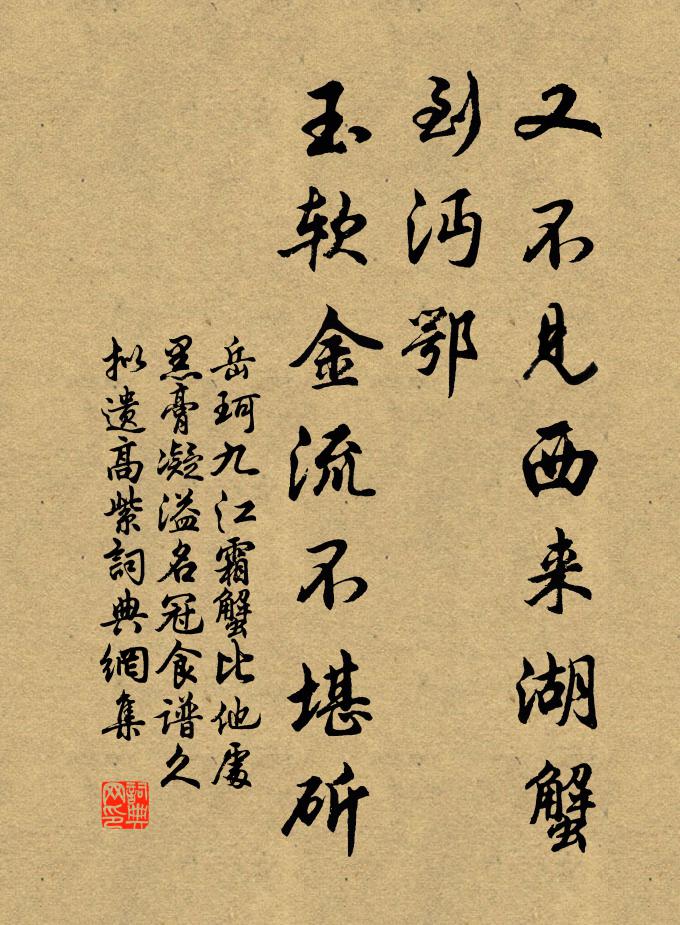 又不見西来湖蟹
到沔鄂
玉软金流不堪斫
岳珂九江霜蟹比他處
黑膏凝溢名冠食谱久
拟遗高紫詞典網集
詞典网印